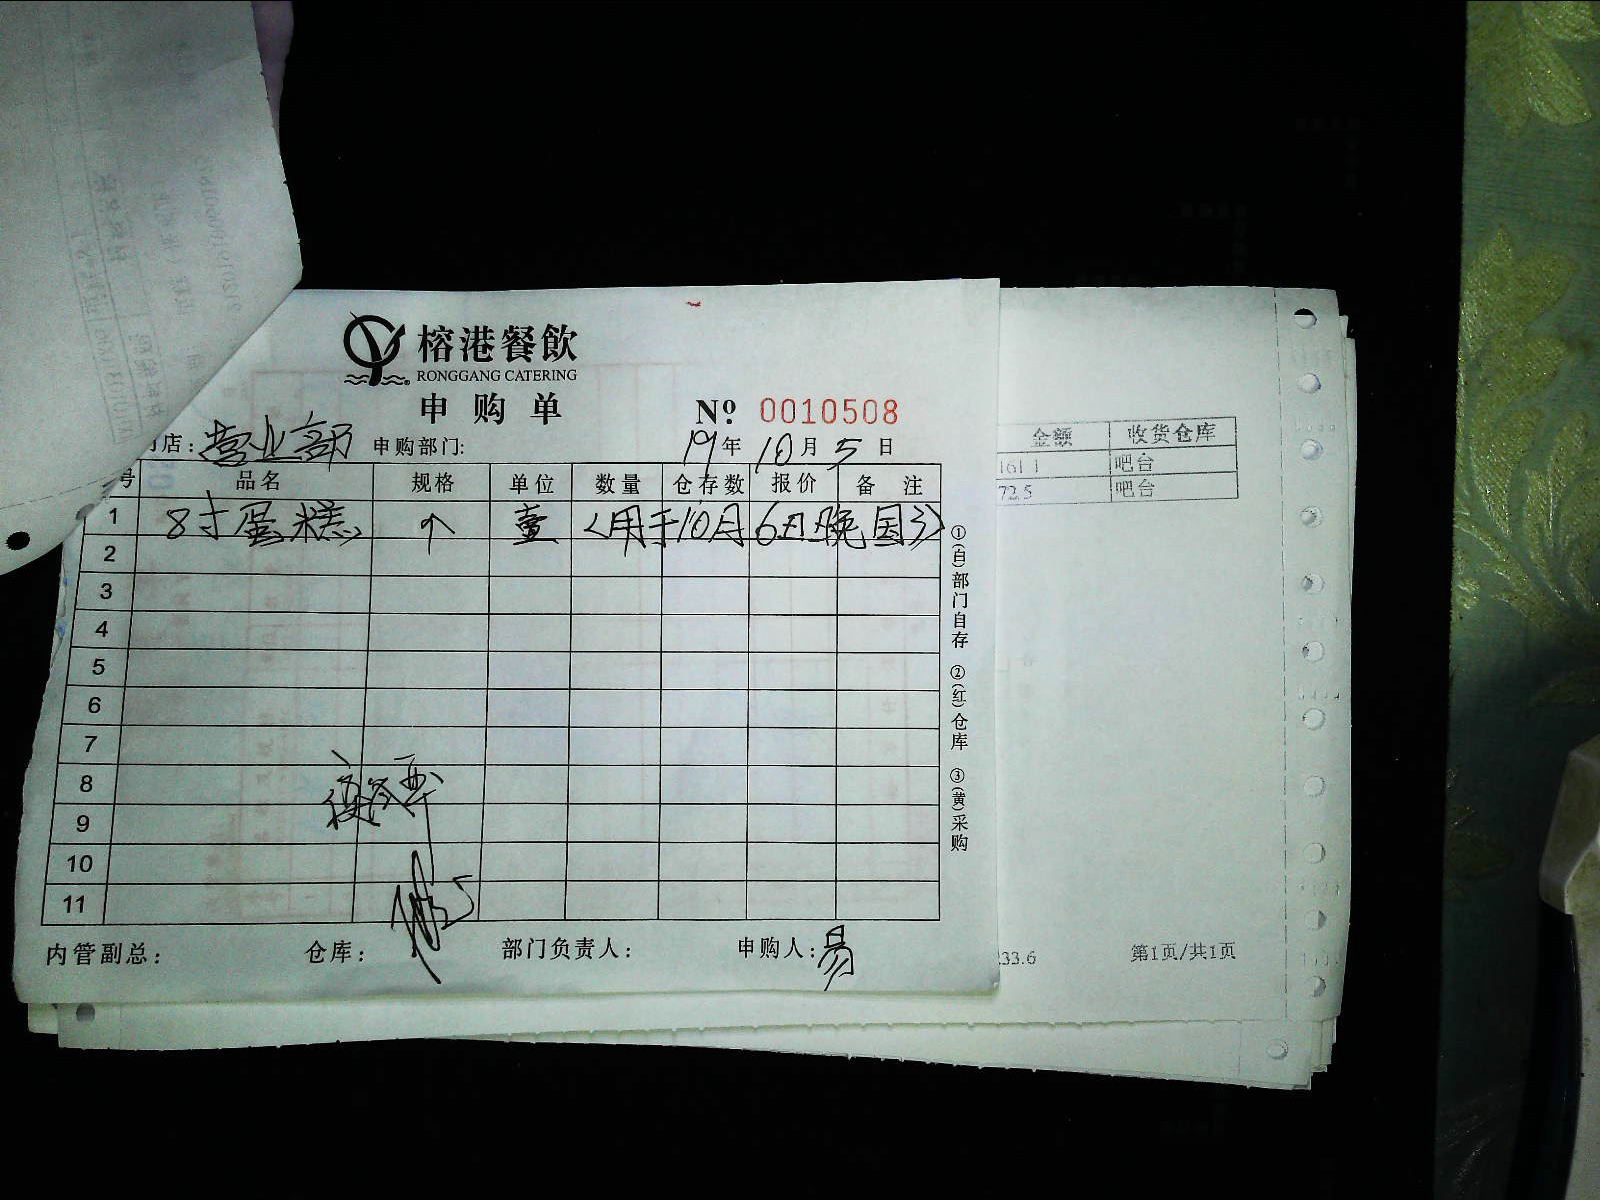 榕港餐飲
RONGGANG CATERING
申购单 № 0010508
店：营业部 申购部门: 19年10月5日
号 品名 规格 单位 数量 仓存数 报价 备注
1 8寸蛋糕 个 壹 <用于10月6日晚国3>
2
3
4
5
6
7
8
9
10
11
内管副总： 仓库： 部门负责人： 申购人：易
①(白)部门自存 ②(红)仓库 ③(黄)采购
金额 收货仓库
161.1 吧台
72.5 吧台
33.6 第1页/共1页